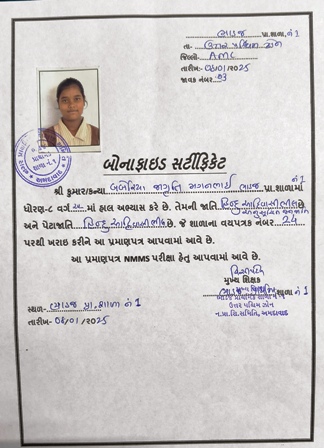 ભાડજ પ્રા.શાળા, નં 1
તા- ઉત્તર પશ્ચિમ ઝોન
જિલ્લો- AMC
તારીખ:- 06/01/2025
જાવક નંબર 93
બોનાફાઇડ સર્ટીફિકેટ
શ્રી કુમાર/કન્યા બબેરિયા જાગૃતિ મગનભાઈ ભાડજ પ્રા.શાળામાં નં 1
ધોરણ-૮ વર્ગ માં હાલ અભ્યાસ કરે છે. તેમની જાતિ હિન્દુ આદિવાસી ભીલ છે
અનુસુચિત જનજાતિ
અને પેટાજાતિ હિન્દુ આદિવાસી ભીલ છે. જે શાળાના વયપત્રક નંબર 24
પરથી ખરાઇ કરીને આ પ્રમાણપત્ર આપવામાં આવે છે.
આ પ્રમાણપત્ર NMMS પરીક્ષા હેતુ આપવામાં આવે છે.
મુખ્ય શિક્ષક
શાળા નં 1
ઉત્તર પશ્ચિમ ઝોન
ન.પ્રા.શિ.સમિતિ, અમદાવાદ
સ્થળ- ભાડજ પ્રા. શાળા નં 1
તારીખ- 06/01/2025